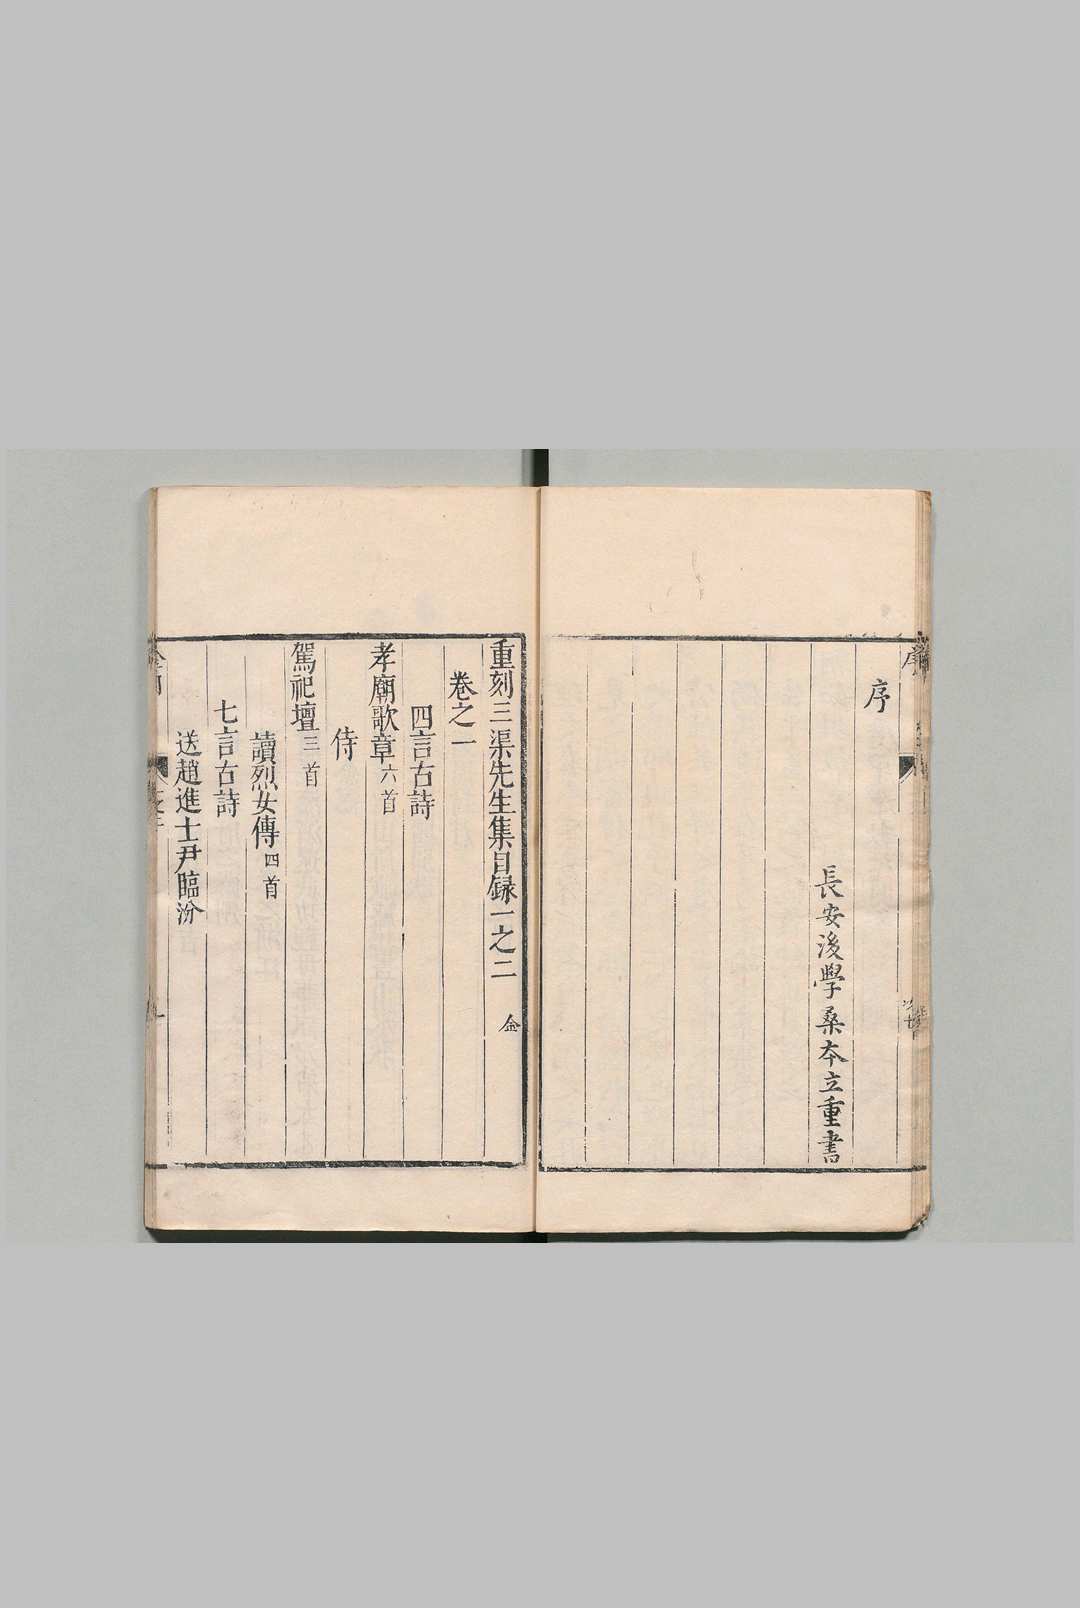 序
長安後學桑本立重書
重刻三渠先生集目録一之二 金
卷之一
四言古詩
孝廟歌章六首
侍
駕祀壇三首
讀烈女傳四首
七言古詩
送趙進士尹臨汾